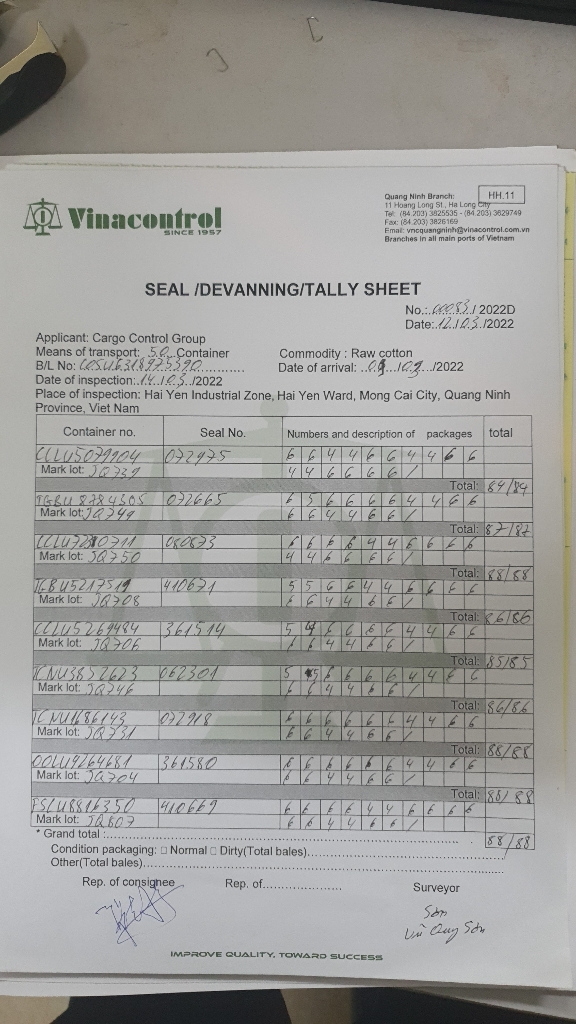 Vinacontrol
SINCE 1957
HH.11
Quang Ninh Branch:
11 Hoang Long St., Ha Long City
Tel: (84.203) 3825535 - (84.203) 3629749
Fax: (84.203) 3826169
Email: vncquangninh@vinacontrol.com.vn
Branches in all main ports of Vietnam
SEAL /DEVANNING/TALLY SHEET
No.: 00083 / 2022D
Date: 12/03/2022
Applicant: Cargo Control Group
Means of transport: 50 Container Commodity : Raw cotton
B/L No: COSU6318975390 Date of arrival: /2022
Date of inspection: 14/03/2022
Place of inspection: Hai Yen Industrial Zone, Hai Yen Ward, Mong Cai City, Quang Ninh
Province, Viet Nam
Container no. Seal No. Numbers and description of packages total
CCLU5079904 072975 6 6 4 4 6 6 4 4 6 6
Mark lot: JQ739 4 4 6 6 6 6 /
Total: 84/84
TGBU8784505 072665 6 5 6 6 6 6 4 4 6 6
Mark lot: JQ749 6 6 4 4 6 6 /
Total: 87/87
6 6 6 6 4 4 6 6 6 6
Mark lot: JQ750 4 4 6 6 6 6 /
Total: 88/88
410671 5 5 6 6 4 4 6 6 6 6
Mark lot: JQ708 6 6 4 4 6 6 /
Total: 86/86
CCLU5269484 361514 5 4 6 6 6 6 4 4 6 6
Mark lot: JQ706 6 6 4 4 6 6 /
Total: 85/85
TCNU3852623 062301 5 5 6 6 6 6 4 4 6 6
Mark lot: JQ746 6 6 4 4 6 6 /
Total: 86/86
TCNU1686143 072918 6 6 6 6 6 6 4 4 6 6
Mark lot: JQ731 6 6 4 4 6 6 /
Total: 88/88
OOLU9264681 361580 6 6 6 6 6 6 4 4 6 6
Mark lot: JQ704 6 6 4 4 6 6 /
Total: 88/88
FSCU8816350 410669 6 6 6 6 4 4 6 6 6 6
Mark lot: JQ807 6 6 4 4 6 6 /
* Grand total : 88/88
Condition packaging: □ Normal □ Dirty(Total bales)
Other(Total bales)
Rep. of consignee Rep. of Surveyor
Sơn
Vũ Quý Sơn
IMPROVE QUALITY, TOWARD SUCCESS